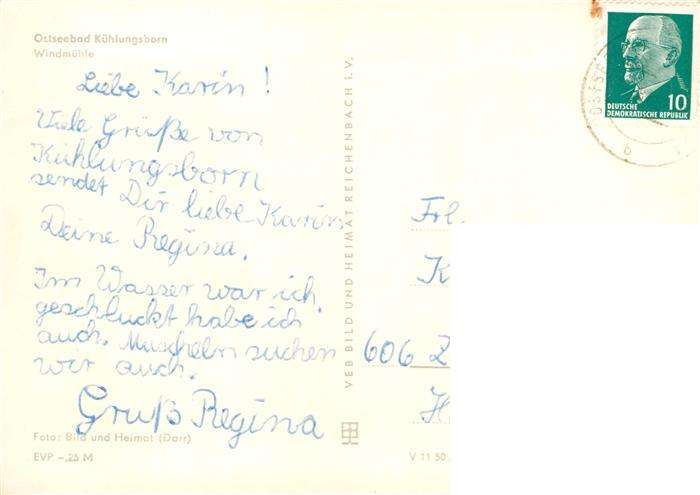 Ostseebad Kühlungsborn
Windmühle
Liebe Karin!
Viele Grüße von
Kühlungsborn
sendet Dir liebe Karin
Deine Regina.
Im Wasser war ich,
geschluckt habe ich
auch. Muscheln suchen
wir auch.
Gruß Regina
Foto: Bild und Heimat (Darr)
EVP -,25 M
VEB BILD UND HEIMAT REICHENBACH I. V.
10
DEUTSCHE
DEMOKRATISCHE REPUBLIK
Frl.
K
606 Z
H
V 11 50